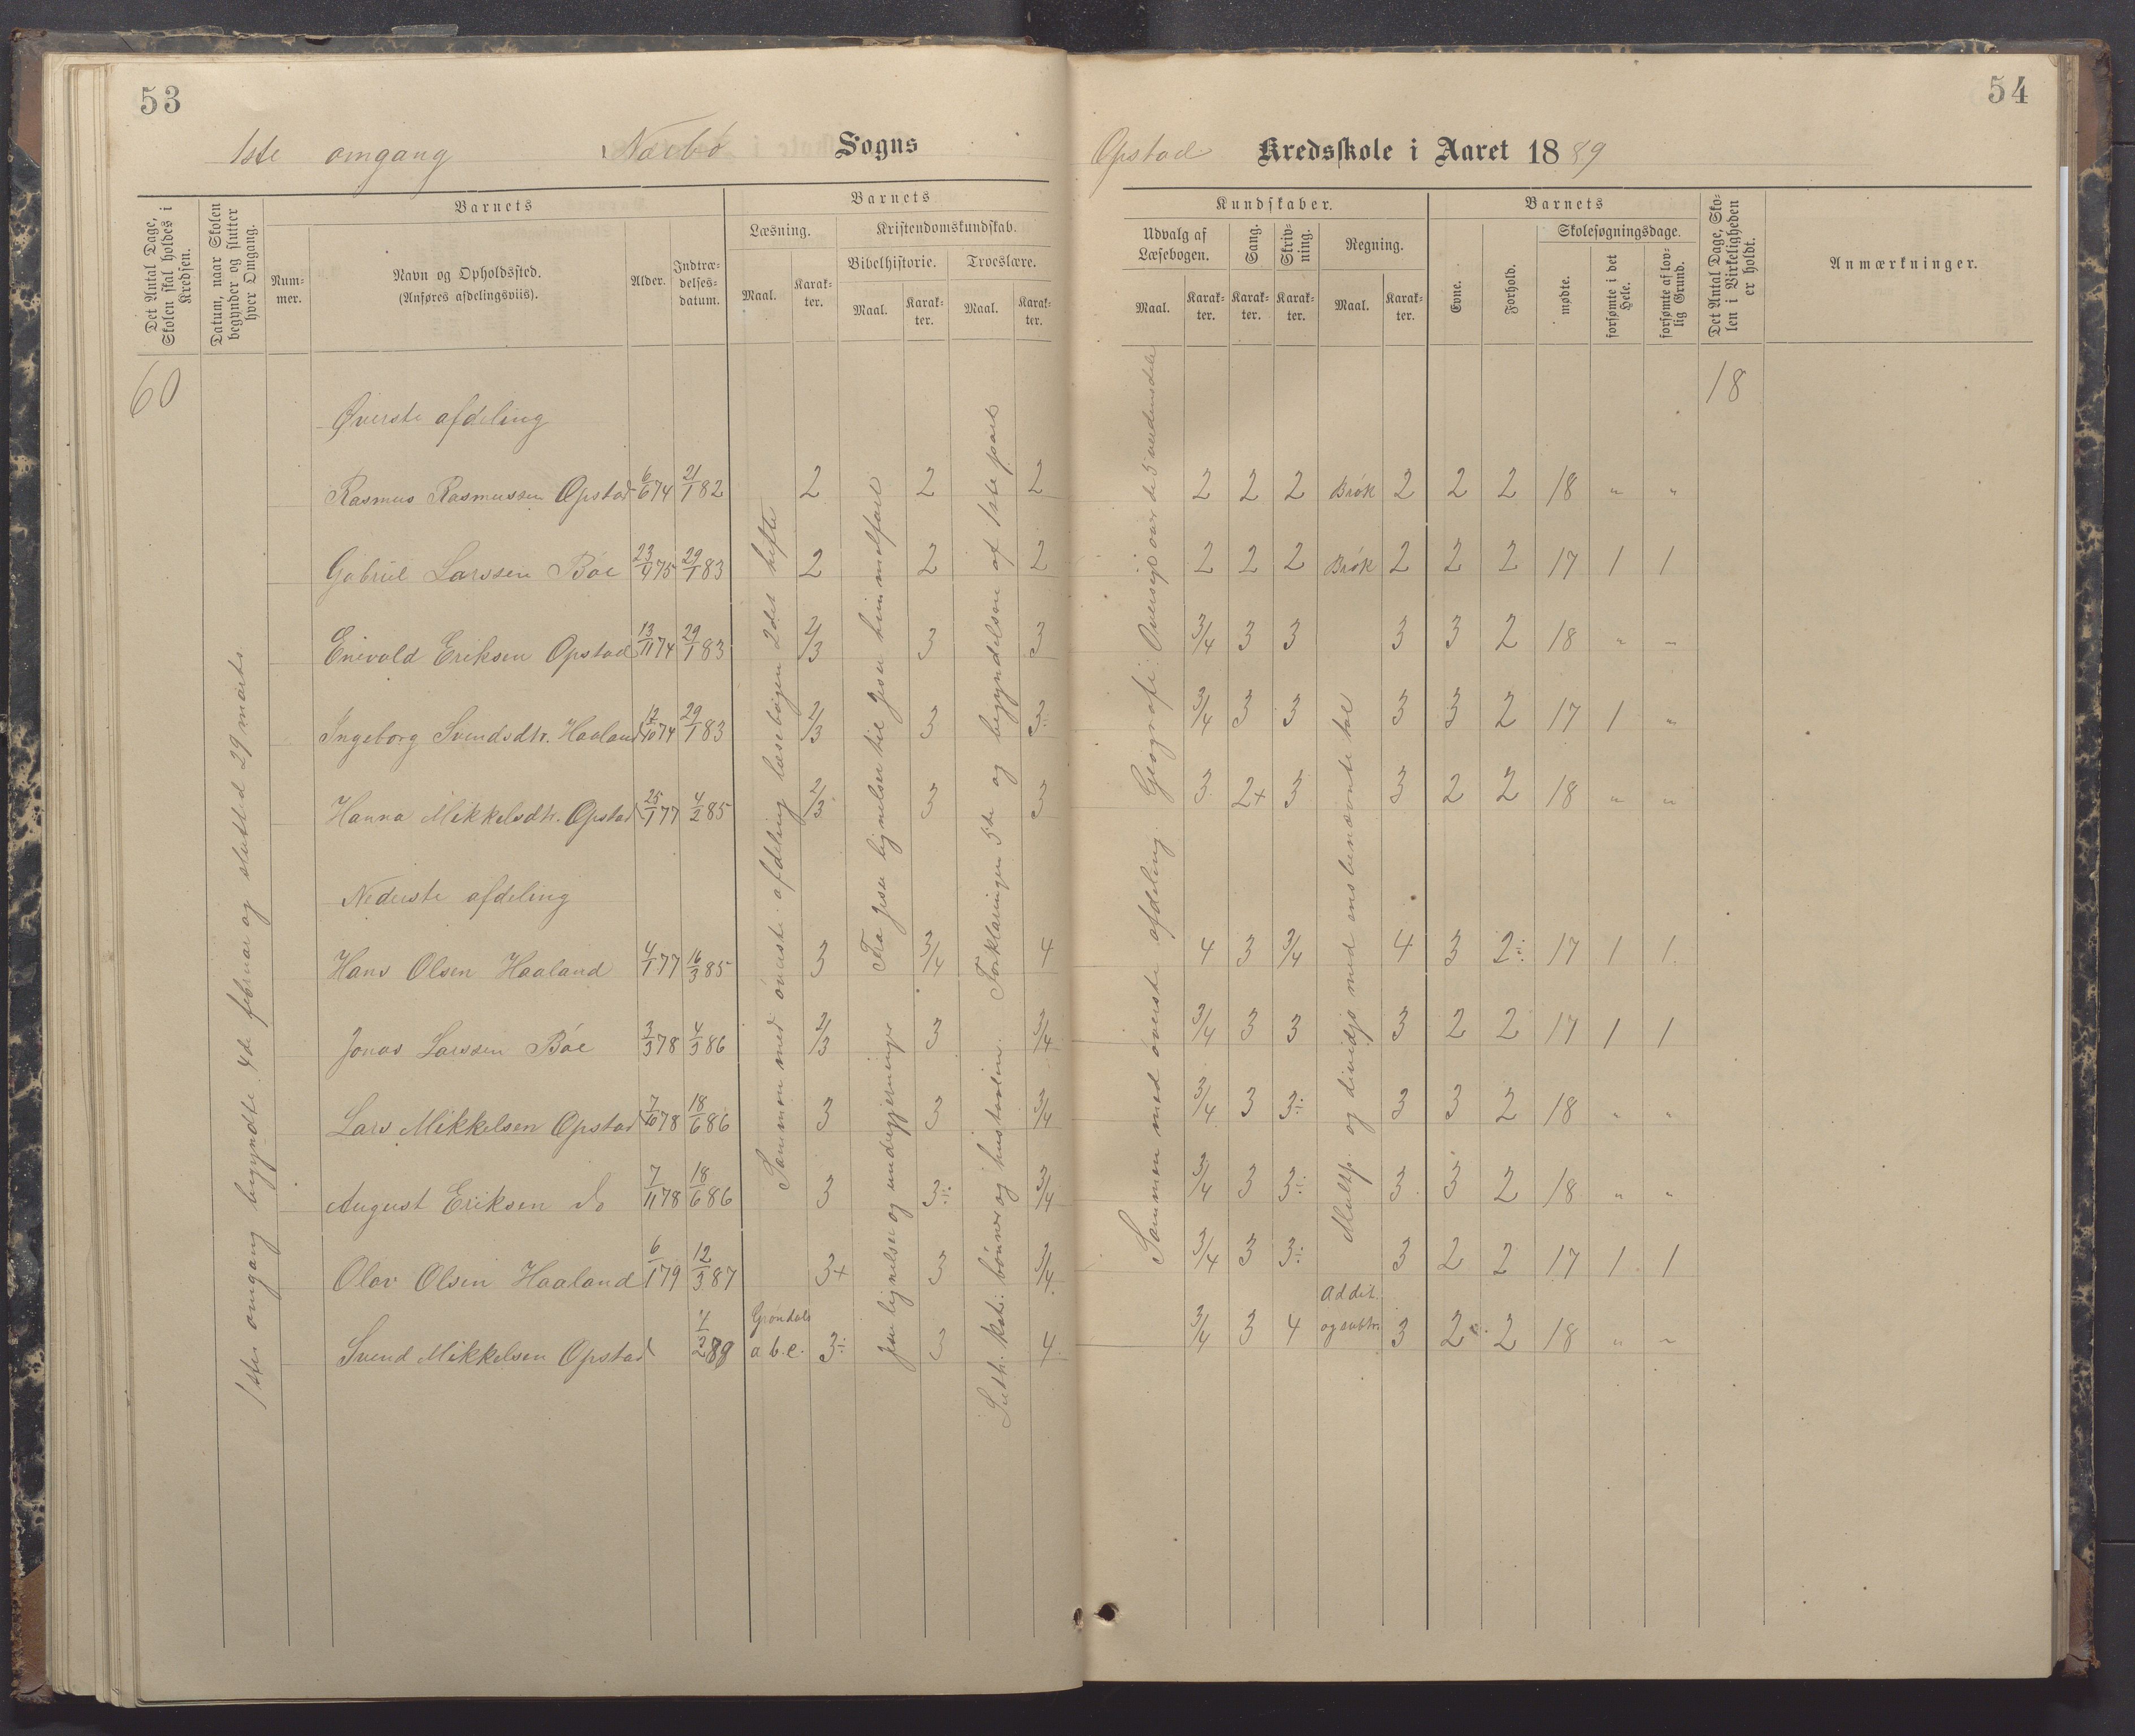 53
1ste omgang Nærbø Sogns
Det Antal Dage, Skolen skal holdes i Kredsen.
Datum, naar Skolen begynder og slutter hver Omgang.
Barnets
Nummer.
Navn og Opholdssted.
(Anføres afdelingsviis).
Alder.
Indtrædelsesdatum.
Barnets
Læsning.
Maal.
Karakter.
Kristendomskundskab.
Bibelhistorie.
Maal.
Karakter.
Troeslære.
Maal.
Karakter.
60
1ste omgang begyndte 4de februar og slutted 29 marts
Øverste afdeling
Rasmus Rasmussen Opstad 6/6 74 21/1 82 2 2 2
Gabriel Larssen Bóe 23/4 75 29/1 83 2 2 2
Enevald Eriksen Opstad 13/11 74 29/1 83 2/3 3 3
Ingeborg Svendsdtr. Haaland 12/10 74 29/1 83 2/3 3 3÷
Hanna Mikkelsdtr. Opstad 25/1 77 4/2 85 2/3 3 3
Nederste afdeling
Hans Olsen Haaland 4/1 77 16/3 85 3 3/4 4
Jonas Larssen Bóe 3/3 78 4/3 86 2/3 3 3/4
Lars Mikkelsen Opstad 7/10 78 18/6 86 3 3 3/4
August Eriksen do 7/11 78 18/6 86 3 3÷ 3/4
Olav Olsen Haaland 6/1 79 12/3 87 3+ 3 3/4
Svend Mikkelsen Opstad 4/2 89 Grøndals a b.c. 3÷ 3 4
Sammen med óverste afdeling læsebógen 2det hefte
Fra Jesu lignelser til Jesu himmelfart
Jesu lignelser og undergjerninger
Forklaringen 5te og begyndelsen af 1ste part
Luth. kat: bónner og hustavlen.
54
Opstad Kredsskole i Aaret 1889
Kundskaber.
Udvalg af Læsebogen.
Maal.
Karakter.
Sang.
Karakter.
Skrivning.
Karakter.
Regning.
Maal.
Karakter.
Barnets
Evne.
Forhold.
Skolesøgningsdage.
mødte.
forsømte i det Hele.
forsømte af lovlig Grund.
Det Antal Dage, Skolen i Virkeligheden er holdt.
Anmærkninger.
18
2 2 2 Brøk 2 2 2 18 " "
2 2 2 Brøk 2 2 2 17 1 1
3/4 3 3 3 3 2 18 " "
3/4 3 3 3 3 2 17 1 "
3 2+ 3 3 2 2 18 " "
4 3 3/4 4 3 2÷ 17 1 1
3/4 3 3 3 2 2 17 1 1
3/4 3 3÷ 3 3 2 18 " "
3/4 3 3÷ 3 3 2 18 " "
3/4 3 3÷ 3 2 2 17 1 1
3/4 3 4 Addit. og subtr. 3 2 2 18 " "
Sammen med óverste afdeling. Geografi: Oversigt over de 5 verdensdele
Multp. og dividjo med ensbenævnte tal